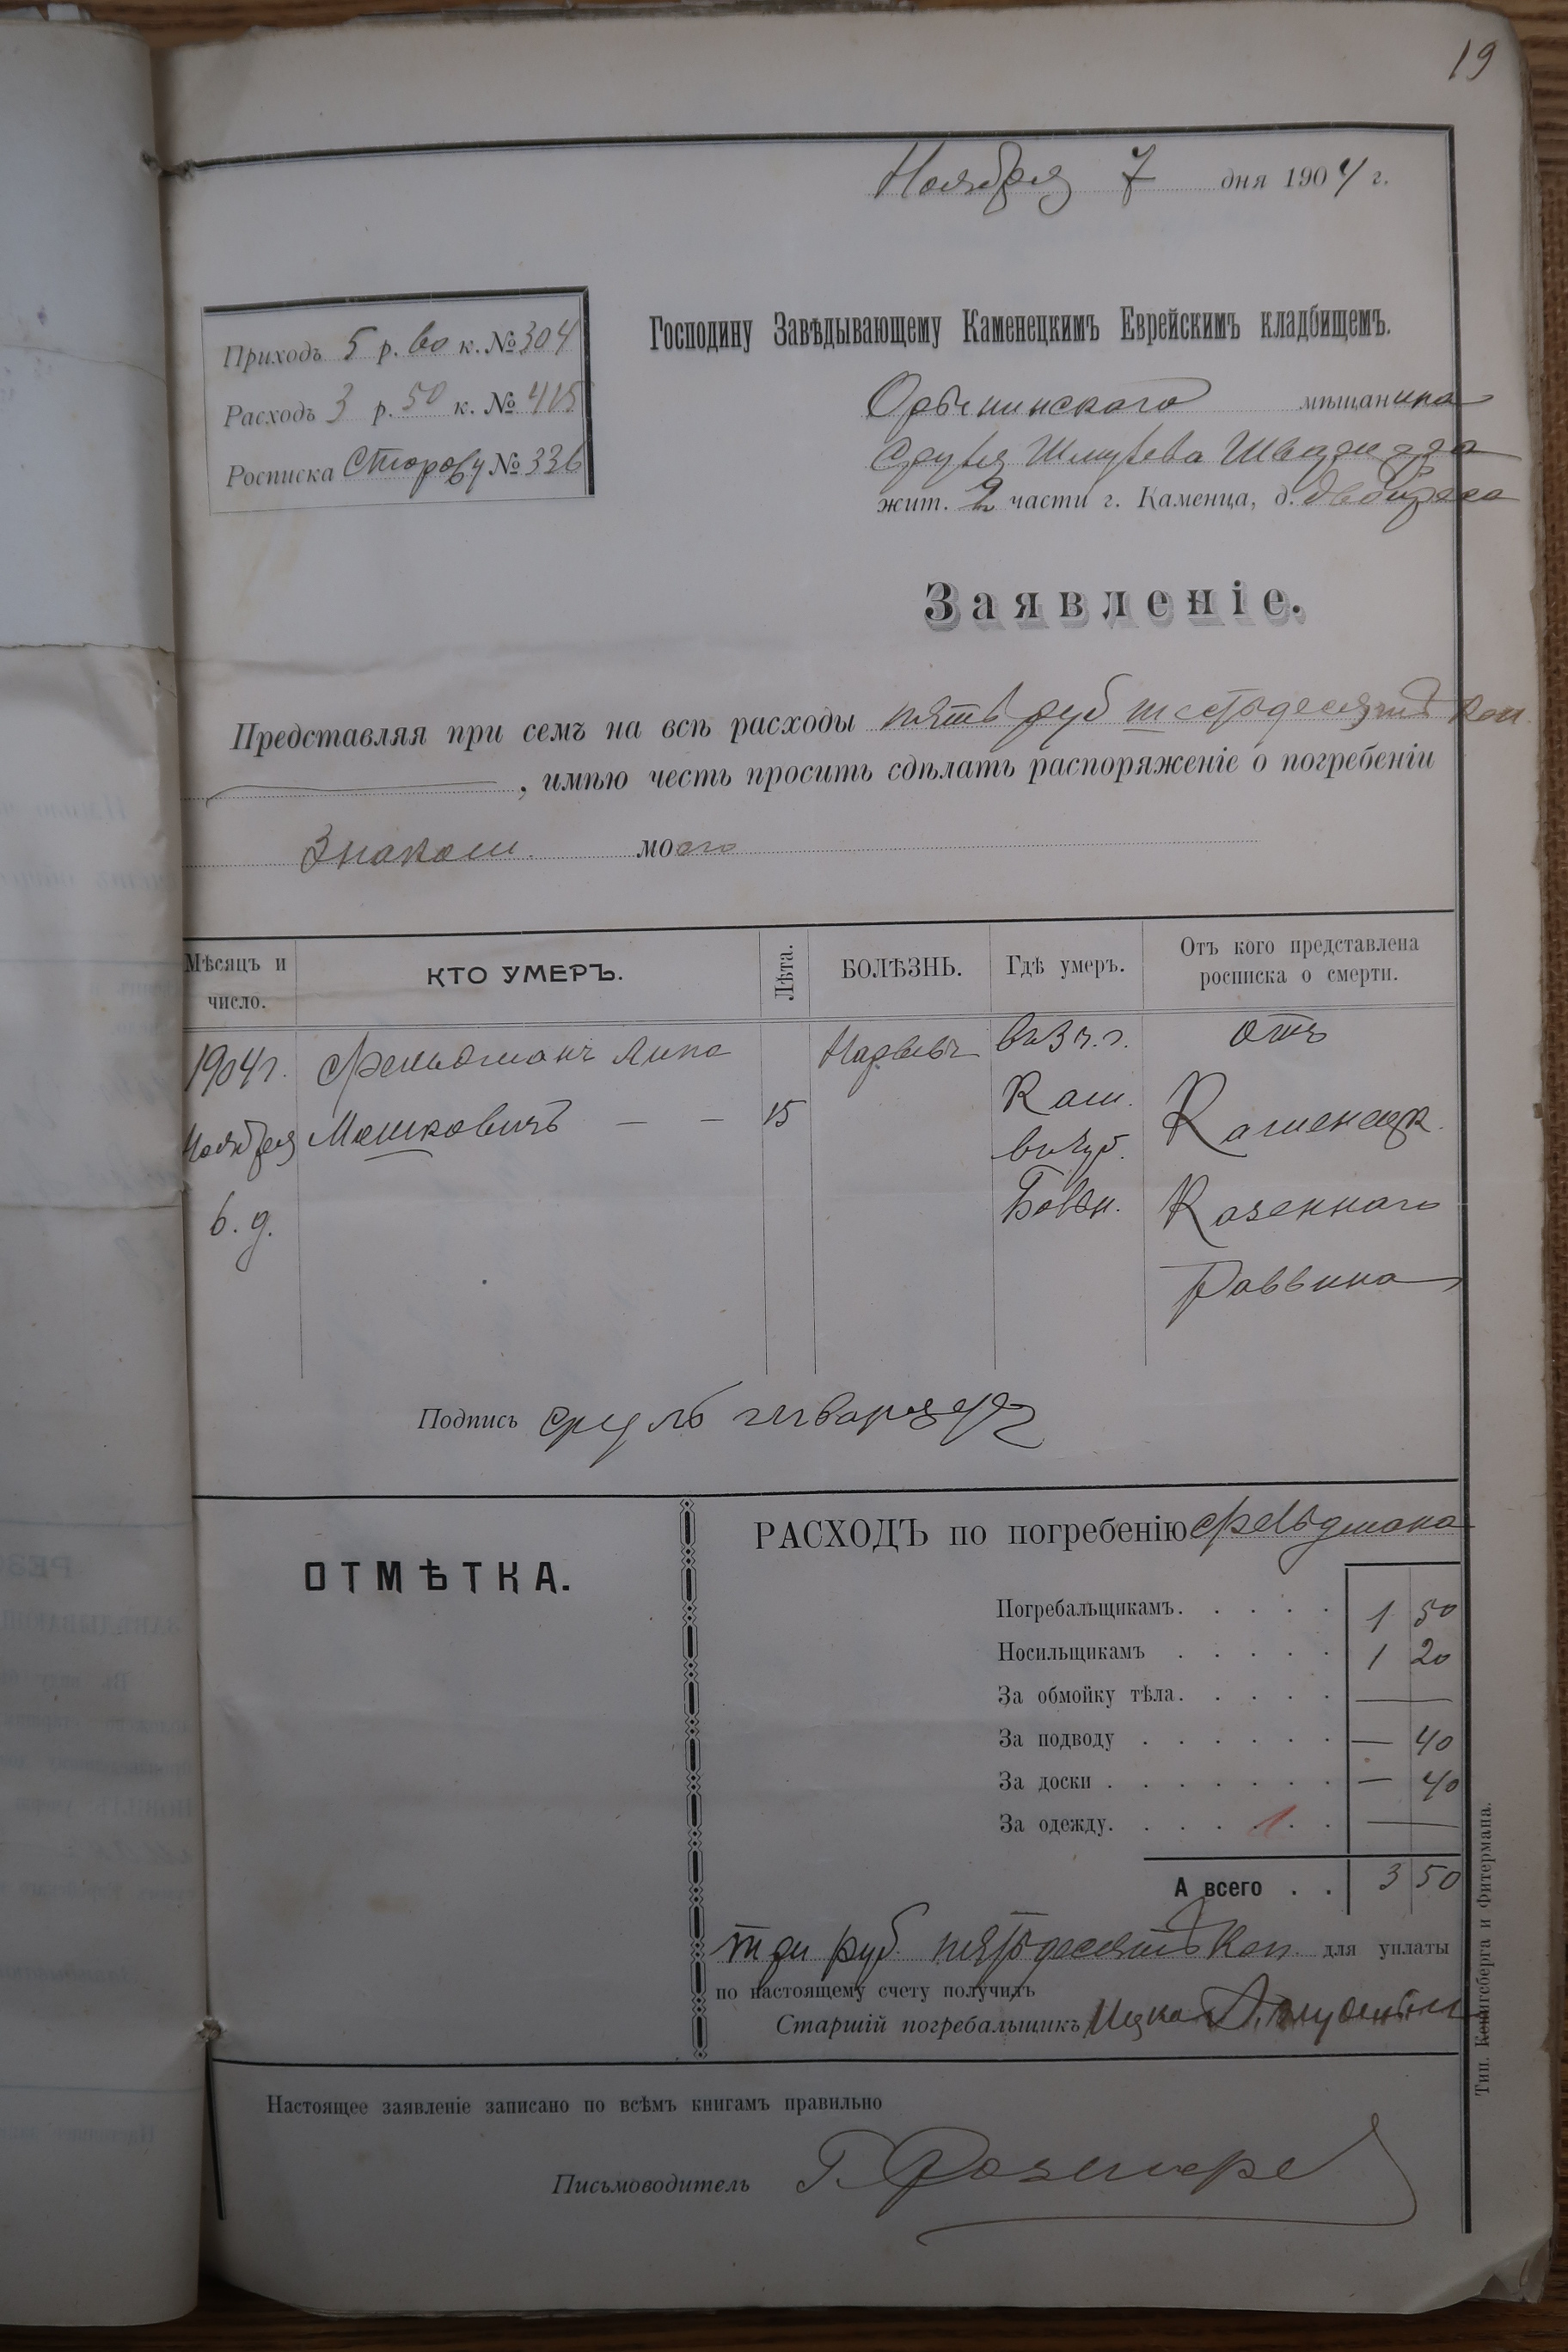 19
Ноября 7 дня 1904 г.
Приходъ 5 р. 60 к. № 304
Расходъ 3 р. 50 к. № 415
Росписка Сторожу № 336
Господину Завѣдывающему Каменецкимъ Еврейскимъ кладбищемъ.
мѣщанина
Сруля Шмулева
жит. 2 части г. Каменца, д.
Заявленіе.
Представляя при семъ на всѣ расходы пять руб шестьдесятъ коп
, имѣю честь просить сдѣлать распоряженіе о погребеніи
Знаком. моего
Мѣсяцъ и число.
КТО УМЕРЪ.
Лѣта.
БОЛѢЗНЬ.
Гдѣ умеръ.
Отъ кого представлена росписка о смерти.
1904 г. Фельдманъ Липа Нарывъ въ 3 ч. г. отъ
Ноября Мошковичъ — — 15 Кам. Каменецк.
6. д. въ губ. Казеннаго
Больн. Раввина
Подпись Сруль Шварцеръ
ОТМѢТКА.
РАСХОДЪ по погребенію Фельдмана
Погребальщикамъ. . . . . 1 50
Носильщикамъ . . . . . 1 20
За обмойку тѣла. . . . . —
За подводу . . . . . . — 40
За доски . . . . . . . — 40
За одежду. . . . 1 . . —
А всего . . 3 50
три руб. пятьдесятъ коп. для уплаты
по настоящему счету получилъ
Старшій погребальщикъ Ицко
Настоящее заявленіе записано по всѣмъ книгамъ правильно
Письмоводитель Г.
Тип. Кенигсберга и Фитермана.